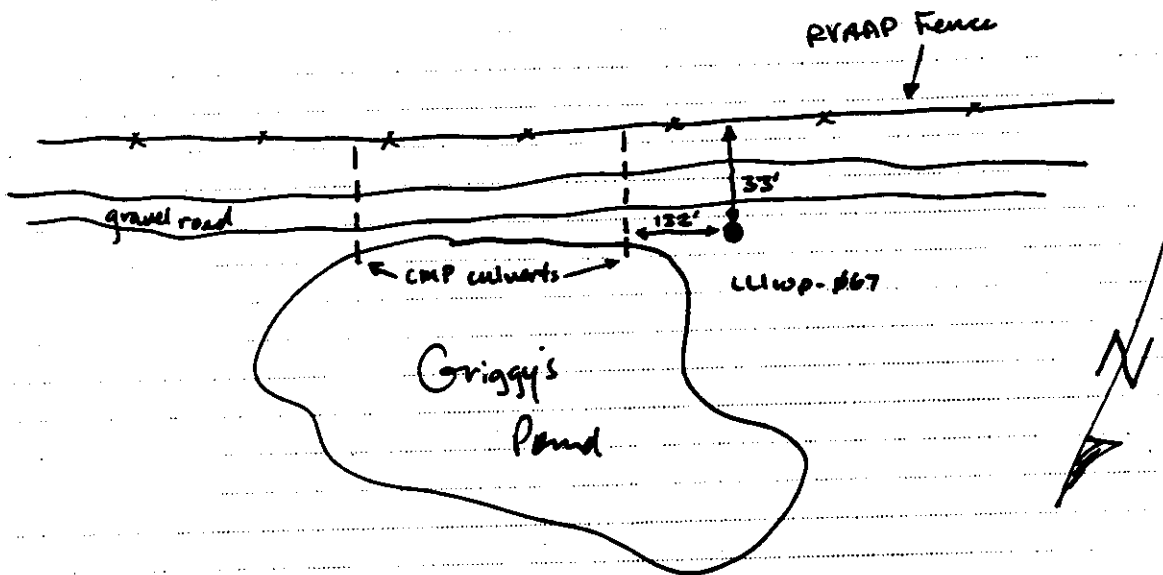 RVAAP Fence
33'
gravel road
132'
CMP culverts
LL1wp-Ø67
Griggy's
Pond
N